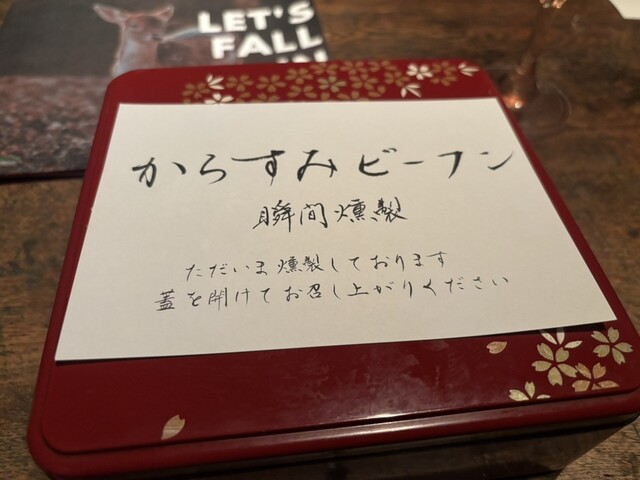 LET'S
FALL
からすみビーフン
瞬間燻製
ただいま燻製しております
蓋を開けてお召し上がりください